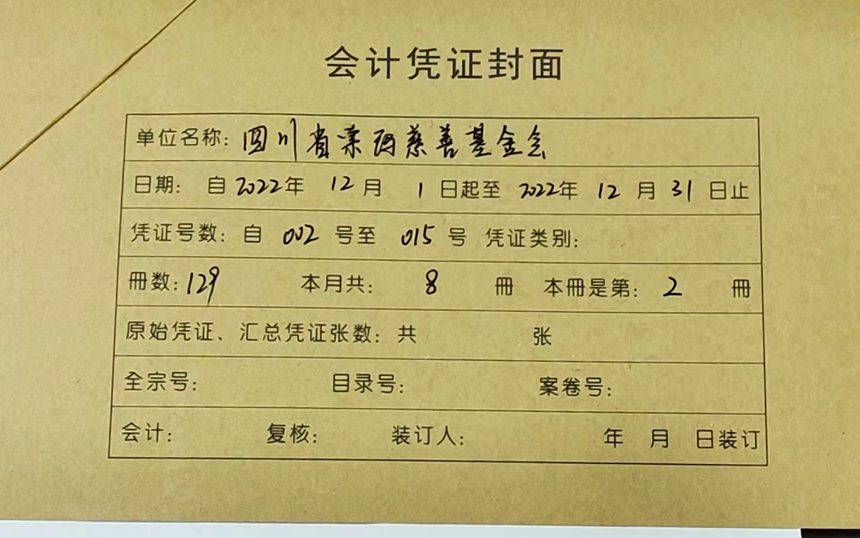 会计凭证封面
单位名称: 四川省荣两慈善基金会
日期: 自2022年 12月 1日起至 2022年 12月 31日止
凭证号数: 自 002 号至 015 号 凭证类别:
冊数: 129 本月共: 8 冊 本冊是第: 2 冊
原始凭证、汇总凭证张数: 共 张
全宗号: 目录号: 案卷号:
会计: 复核: 装订人: 年 月 日装订